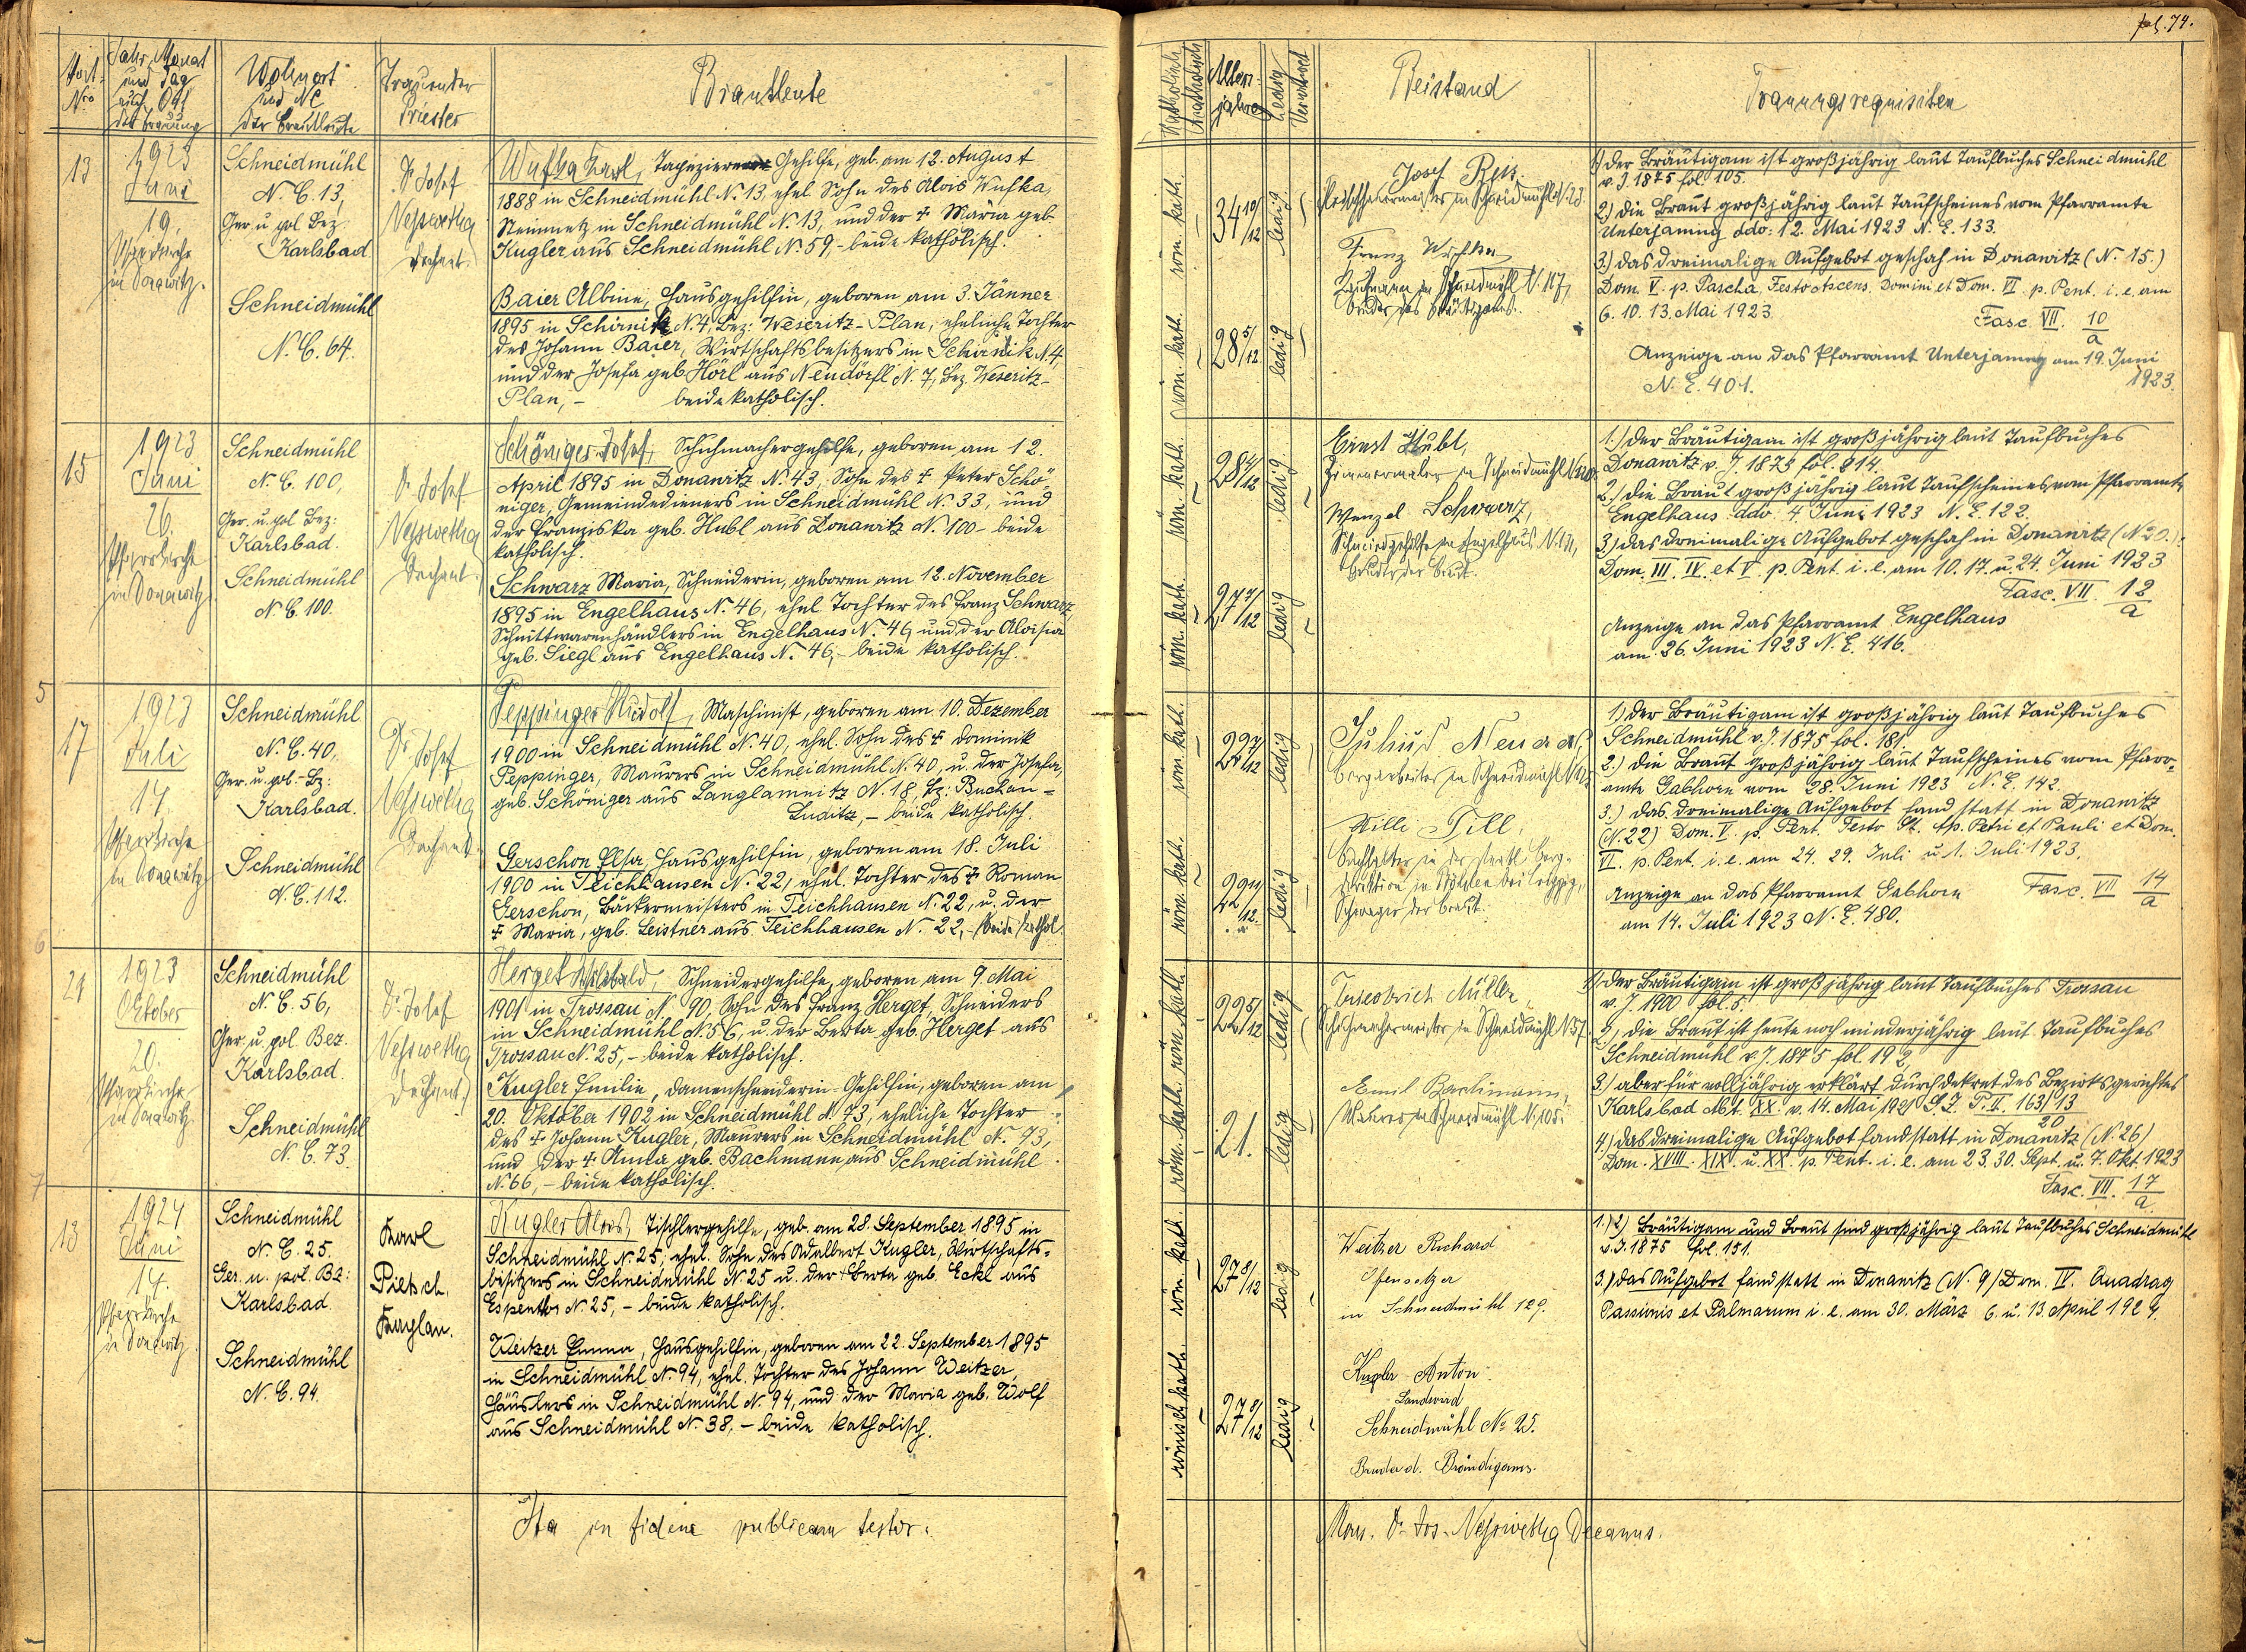 fol. 74.
Post-
Nro
Jahr, Monat
und Tag
auch Ort
der Trauung
Wohnort
und NC
der Brautleute
Trauender
Priester
Brautleute
Katholisch
Akatholisch
Alters-
jahre
Ledig
Verwitwet
Beistand
Trauungsrequisiten
13
1923
Juni
19.
Pfarrkirche
in Donawitz.
Schneidmühl
N. C. 13,
Ger. u. pol. Bez
Karlsbad
Schneidmühl
N. C. 64.
Dr Josef
Nesswetha
Dechant.
Wufka Karl, Tapezierer Gehilfe, geb. am 12. August
1888 in Schneidmühl N. 13, ehel. Sohn des Alois Wufka,
Steinmetz in Schneidmühl N. 13, und der † Maria geb
Kugler aus Schneidmühl N. 59, – beide katholisch.
Baier Albine, Hausgehilfin, geboren am 3. Jänner
1895 in Schirnik N. 4, Bez: Weseritz-Plan, eheliche Tochter
des Johann Baier, Wirtschaftsbesitzers in Schirnik N. 4,
und der Josefa geb. Hörl aus Neudörfl N. 7, Bez. Weseritz-
Plan, – beide katholisch.
röm. kath.
34 10/12
ledig
röm. kath.
28 5/12
ledig
Josef
Fleischhauermeister in Schneidmühl N. 23.
Franz Wufka
Kaufmann in Schneidmühl N. 117,
Bruder des Bräutigams.
1) Der Bräutigam ist großjährig laut Taufbuches Schneidmühl
v. J. 1875 fol. 105.
2.) die Braut großjährig laut Taufscheines vom Pfarramte
Unterjamny ddo: 12. Mai 1923 N. E. 133.
3.) das dreimalige Aufgebot geschah in Donawitz (N. 15.)
Dom. V. p. Pascha, Festo Ascens. Domini et Dom. VI. p. Pent. i. e. am
6. 10. 13. Mai 1923
Fasc. VII. 10/a
Anzeige an das Pfarramt Unterjamny am 19. Juni
N. E. 401. 1923.
15
1923
Juni
26.
Pfarrkirche
in Donawitz
Schneidmühl
N. C. 100,
Ger. u. pol Bez:
Karlsbad.
Schneidmühl
N. C. 100.
Dr Josef
Nesswetha
Dechant.
Schöniger Josef, Schuhmachergehilfe, geboren am 12.
April 1895 in Donawitz N. 43, Sohn des † Peter Schö-
niger, Gemeindedieners in Schneidmühl N. 33, und
der Franziska geb. Hubl aus Donawitz N. 100 – beide
katholisch.
Schwarz Maria, Schneiderin, geboren am 12. November
1895 in Engelhaus N. 46, ehel. Tochter des Franz Schwarz,
Schnittwarenhändlers in Engelhaus N. 46 und der Aloisia
geb. Siegl aus Engelhaus N. 46, – beide katholisch.
röm. kath.
28 2/12
ledig
röm. kath.
27 7/12
ledig
Ernst Hubl,
Zimmermaler in Schneidmühl N. 120
Wenzel Schwarz,
Schneidgehilfe in Engelhaus N. 131,
Bruder der Braut.
1.) Der Bräutigam ist großjährig laut Taufbuches
Donawitz v. J. 1875 fol. 214.
2.) die Braut großjährig laut Taufscheines vom Pfarramte
Engelhaus ddo. 4. Juni 1923 N. E. 122.
3.) das dreimalige Aufgebot geschah in Donawitz (N. 20.)
Dom. III. IV. et V. p. Pent. i. e. am 10. 17. u. 24. Juni 1923
Fasc. VII. 12/a
Anzeige an das Pfarramt Engelhaus
am 26. Juni 1923 N. E. 416.
17
1923
Juli
14.
Pfarrkirche
in Donawitz
Schneidmühl
N. C. 40,
Ger. u. pol. Bz:
Karlsbad.
Schneidmühl
N. C. 112.
Dr Josef
Nesswetha
Dechant.
Peppinger Rudolf, Maschinist, geboren am 10. Dezember
1900 in Schneidmühl N. 40, ehel. Sohn des † Dominik
Peppinger, Maurers in Schneidmühl N. 40, u. der Josefa,
geb. Schöniger aus Langlamnitz N. 18, Bz: Buchau-
Luditz, – beide katholisch.
Gerschon Elsa, Hausgehilfin, geboren am 18. Juli
1900 in Teichhausen N. 22, ehel. Tochter des † Roman
Gerschon, Bäckermeisters in Teichhausen N. 22, u. der
† Maria, geb. Leistner aus Teichhausen N. 22, – beide kathol.
röm. kath.
22 7/12
ledig
röm. kath.
22 11/12
ledig
Julius
Bergarbeiter in Schneidmühl
Willi Till,
Buchhalter in der staatl. Berg-
direktion in Böhlen bei Leipzig,
Schwager der Braut.
1.) Der Bräutigam ist großjährig laut Taufbuches
Schneidmühl v. J. 1875 fol. 181.
2.) die Braut großjährig laut Taufscheines vom Pfarr-
amte Gabhorn vom 28. Juni 1923 N. E. 142.
3.) das dreimalige Aufgebot fand statt in Donawitz
(N. 22) Dom. V. p. Pent. Festo St. Ap. Petri et Pauli et Dom.
VI. p. Pent. i. e. am 24. 29. Juli u. 1. Juli 1923.
Fasc. VII 14/a
Anzeige an das Pfarramt Gabhorn
am 14. Juli 1923 N. E. 480.
21
1923
Oktober
20.
Pfarrkirche
in Donawitz
Schneidmühl
N. C. 56,
Ger. u. pol. Bez.
Karlsbad.
Schneidmühl
N. C. 73.
Dr Josef
Nesswetha
Dechant.
Herget Willibald, Schneidergehilfe, geboren am 9. Mai
1901 in Trossau N. 90, Sohn des Franz Herget, Schneiders
in Schneidmühl N. 56, u. der Berta geb. Herget aus
Trossau N. 25, – beide katholisch.
Kugler Emilie, Damenschneiderin-Gehilfin, geboren am
20. Oktober 1902 in Schneidmühl N. 73, eheliche Tochter
des † Johann Kugler, Maurers in Schneidmühl N. 73,
und der † Anna geb. Bachmann aus Schneidmühl
N. 66, – beide katholisch.
röm. kath.
22 5/12
ledig
röm. kath.
21.
ledig
Friedrich Müller,
Schuhmachermeister in Schneidmühl N. 57
Emil Bachmann,
Maurer in Schneidmühl N. 105.
1) Der Bräutigam ist großjährig laut Taufbuches Trossau
v. J. 1900 fol. 5.
2.) die Braut ist heute noch minderjährig laut Taufbuches
Schneidmühl v. J. 1875 fol. 192
3.) aber für volljährig erklärt durch Dekret des Bezirksgerichtes
Karlsbad Abt. XX. v. 14. Mai 1921 G. Z. P. II. 163/13
20
4.) das dreimalige Aufgebot fand statt in Donawitz (N. 26)
Dom. XVIII. XIX. u. XX. p. Pent. i. e. am 23. 30. Sept. u. 7. Okt. 1923
Fasc. VII. 17/a.
13
1924
Juni
14.
Pfarrkirche
in Donawitz
Schneidmühl
N. C. 25.
Ger. u. pol. Bz:
Karlsbad
Schneidmühl
N. C. 94.
Karl
Pietsch,
Kaplan.
Kugler Alois, Tischlergehilfe, geb. am 28. September 1895 in
Schneidmühl N. 25, ehel. Sohn des Adalbert Kugler, Wirtschafts-
besitzers in Schneidmühl N. 25 u. der † Berta geb. Eckl aus
Espenthor N. 25, – beide katholisch.
Weitzer Emma, Hausgehilfin, geboren am 22. September 1895
in Schneidmühl N. 94, ehel. Tochter des Johann Weitzer,
Häuslers in Schneidmühl N. 94, und der Maria geb. Wolf
aus Schneidmühl N. 38, – beide katholisch.
röm. kath.
27 8/12
ledig
römisch kath.
27 9/12
ledig
Weitzer Richard
Ofensetzer
in Schneidmühl 129.
Kugler Anton
Landwird
Schneidmühl No 25.
Bruder d. Bräudigams.
1.) 2.) Bräutigam und Braut sind großjährig laut Taufbuches Schneidmühl
v. J. 1875 fol. 151.
3.) das Aufgebot fand statt in Donawitz (N. 9) Dom. IV. Quadrag
Passionis et Palmarum i. e. am 30. März 6. u. 13 April 1924.
Ita in fidem publicam testor:
Mons. Dr. Jos. Nesswetha Decanus.